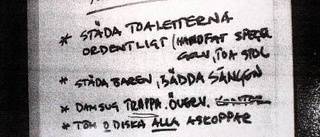 * STÄDA TOALETTERNA
ORDENTLIGT (HANDFAT SPEGEL
GOLV, TOA STOL
* STÄDA BAREN, BÄDDA SÄNGEN
* DAMSUG TRAPPA, ÖVERV.
* TÖM O DISKA ALLA ASKOPPAR